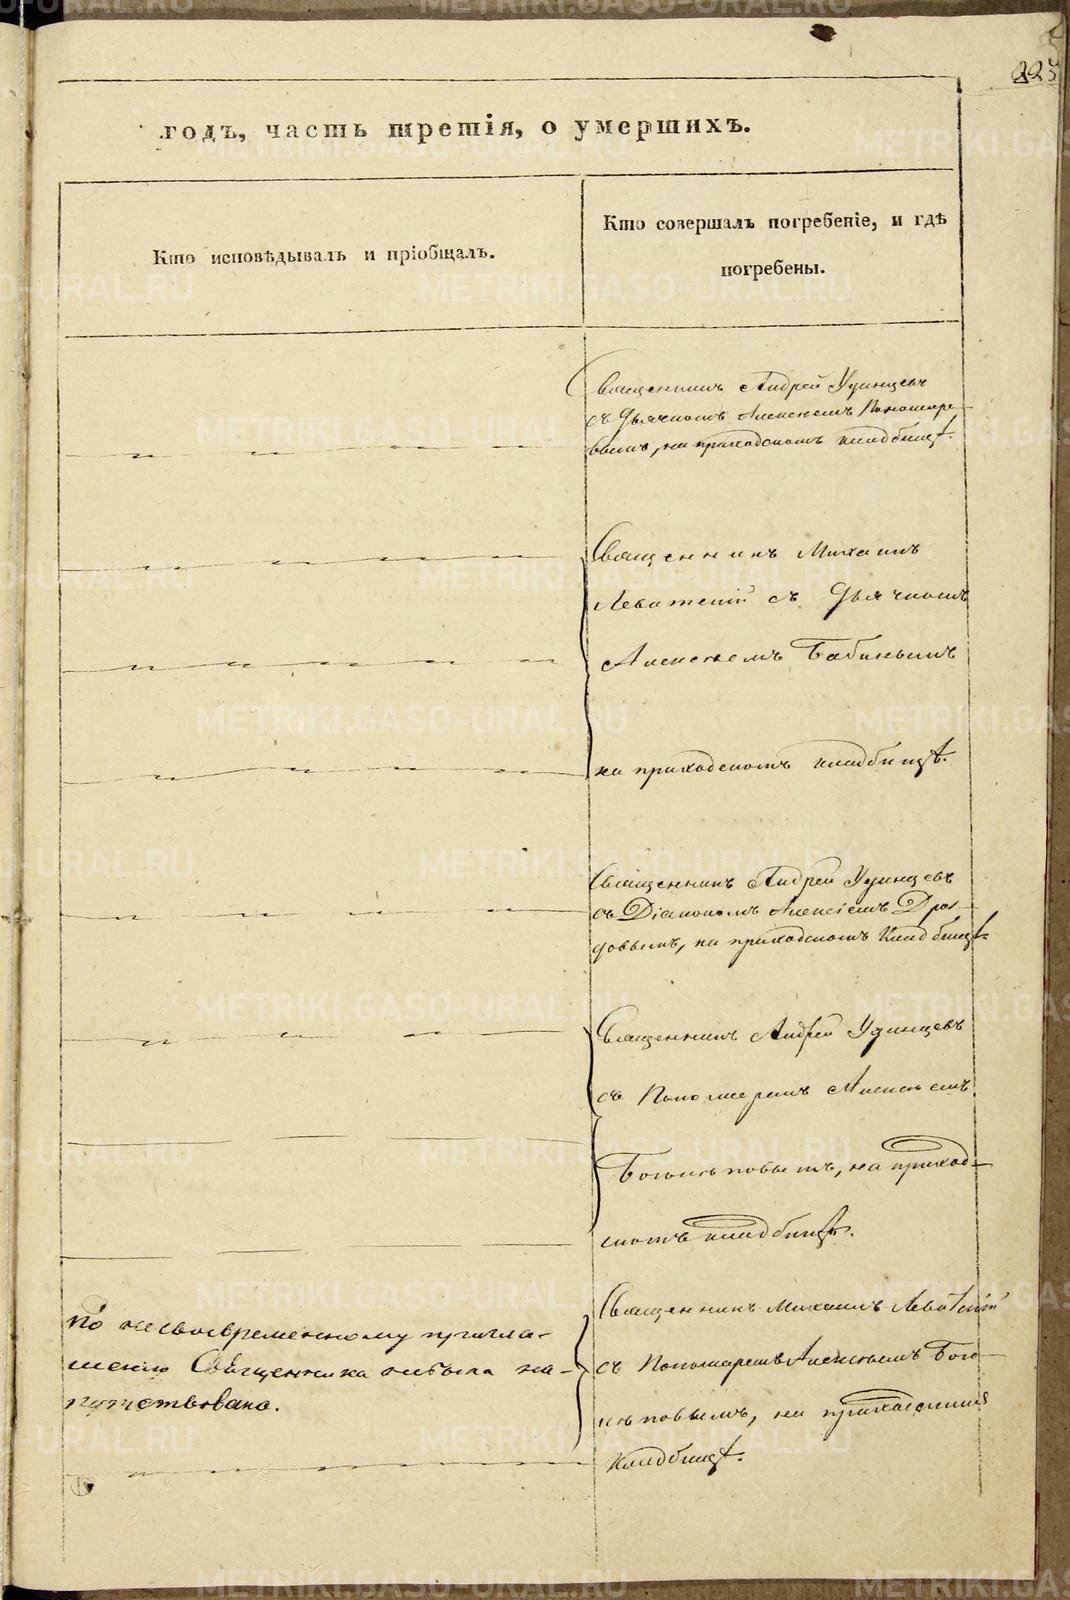 225
годъ, часть третія, о умершихъ.
Кто исповѣдывалъ и пріобщалъ.
Кто совершалъ погребеніе, и гдѣ
погребены.
Священникъ Андрей Удинцевъ
съ Дьячкомъ Алексѣемъ Пономаре-
вымъ, на приходскомъ кладбищѣ.
Священникъ Михаилъ
Левитскій съ Дьячкомъ
Алексѣемъ Бабинымъ
на приходскомъ кладбищѣ.
Священникъ Андрей Удинцевъ
съ Діакономъ Алексіемъ Дроз-
довымъ, на приходскомъ Кладбищѣ
Священникъ Андрей Удинцевъ
съ Пономаремъ Алексѣемъ
на приход-
скомъ кладбищѣ.
По несвоевременному пригла-
шенію Священника небыла на-
путствована.
Священникъ Михаилъ Левитскій
съ Пономаремъ Алексѣемъ Бого-
на приходскомъ
Кладбищѣ.
METRIKI.GASO-URAL.RU